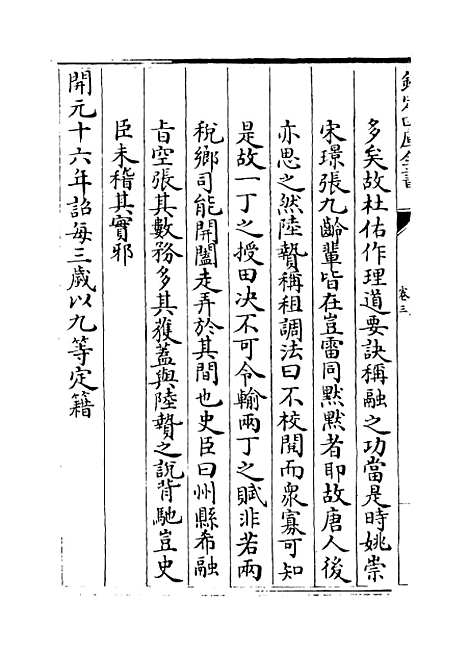 欽定四庫全書
卷三
多矣故杜佑作理道要訣稱融之功當是時姚崇
宋璟張九齡輩皆在豈雷同默默者即故唐人後
亦思之然陸贄稱祖調法曰不校閱而衆寡可知
是故一丁之授田決不可令輸兩丁之賦非若兩
稅鄉司能開闔走弄於其間也史臣曰州縣希融
旨空張其數務多其獲蓋與陸贄之說背馳豈史
臣未稽其實邪
開元十六年詔每三歲以九等定籍